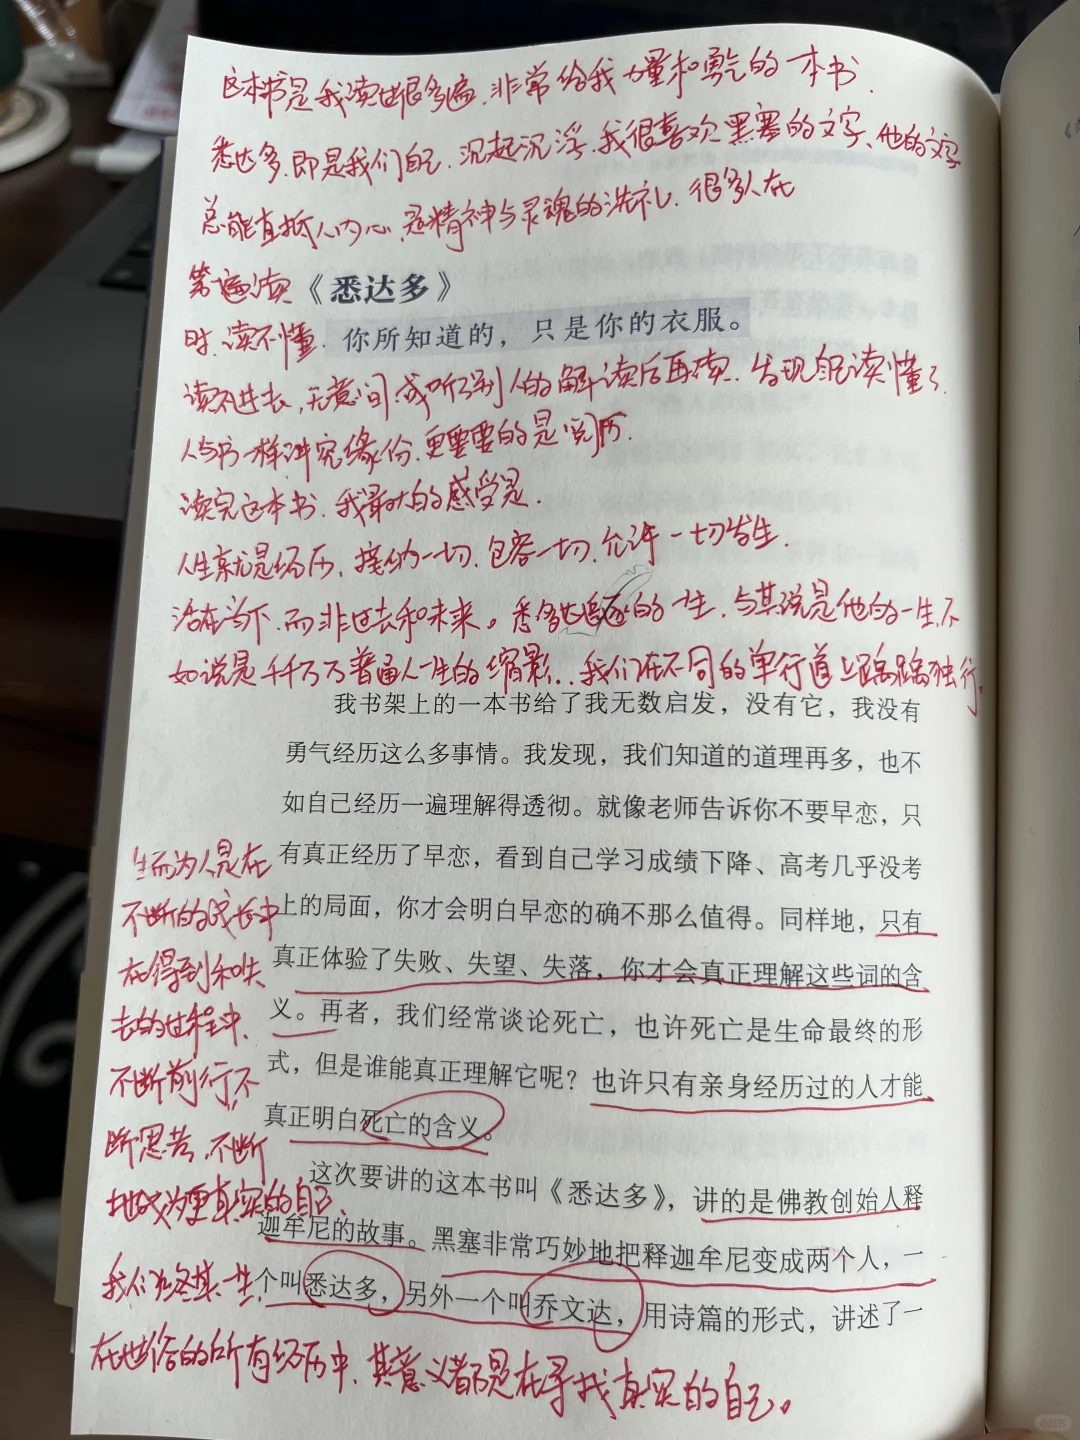 这本书是我读过很多遍、非常给我力量和勇气的一本书.
悉达多.即是我们自己.沉起沉浮.我很喜欢黑塞的文字、他的文字
总能直抵人内心.是精神与灵魂的洗礼.很多人在
第一遍读《悉达多》
时.读不懂.你所知道的，只是你的衣服。
读不进去，无意间.或听了别人的解读后再读.发现自己读懂了.
人与书一样讲究缘份.更重要的是阅历.
读完这本书.我最大的感受是.
人生就是经历.接纳一切.包容一切.允许一切发生.
活在当下.而非过去和未来。悉达多的一生.与其说是他的一生.不
如说是千千万万普通人一生的缩影..我们在不同的单行道上踽踽独行.
我书架上的一本书给了我无数启发，没有它，我没有
勇气经历这么多事情。我发现，我们知道的道理再多，也不
如自己经历一遍理解得透彻。就像老师告诉你不要早恋，只
有真正经历了早恋，看到自己学习成绩下降、高考几乎没考
上的局面，你才会明白早恋的确不那么值得。同样地，只有
真正体验了失败、失望、失落，你才会真正理解这些词的含
义。再者，我们经常谈论死亡，也许死亡是生命最终的形
式，但是谁能真正理解它呢？也许只有亲身经历过的人才能
真正明白死亡的含义。
这次要讲的这本书叫《悉达多》，讲的是佛教创始人释
迦牟尼的故事。黑塞非常巧妙地把释迦牟尼变成两个人，一
个叫悉达多，另外一个叫乔文达，用诗篇的形式，讲述了一
生而为人.是在
不断的成长中
在得到和失
去的过程中.
不断前行.不
断思苦.不断
地成为更真实的自己、
我们终其一生.
在世俗的所有经历中.其意义都是在寻找真实的自己。